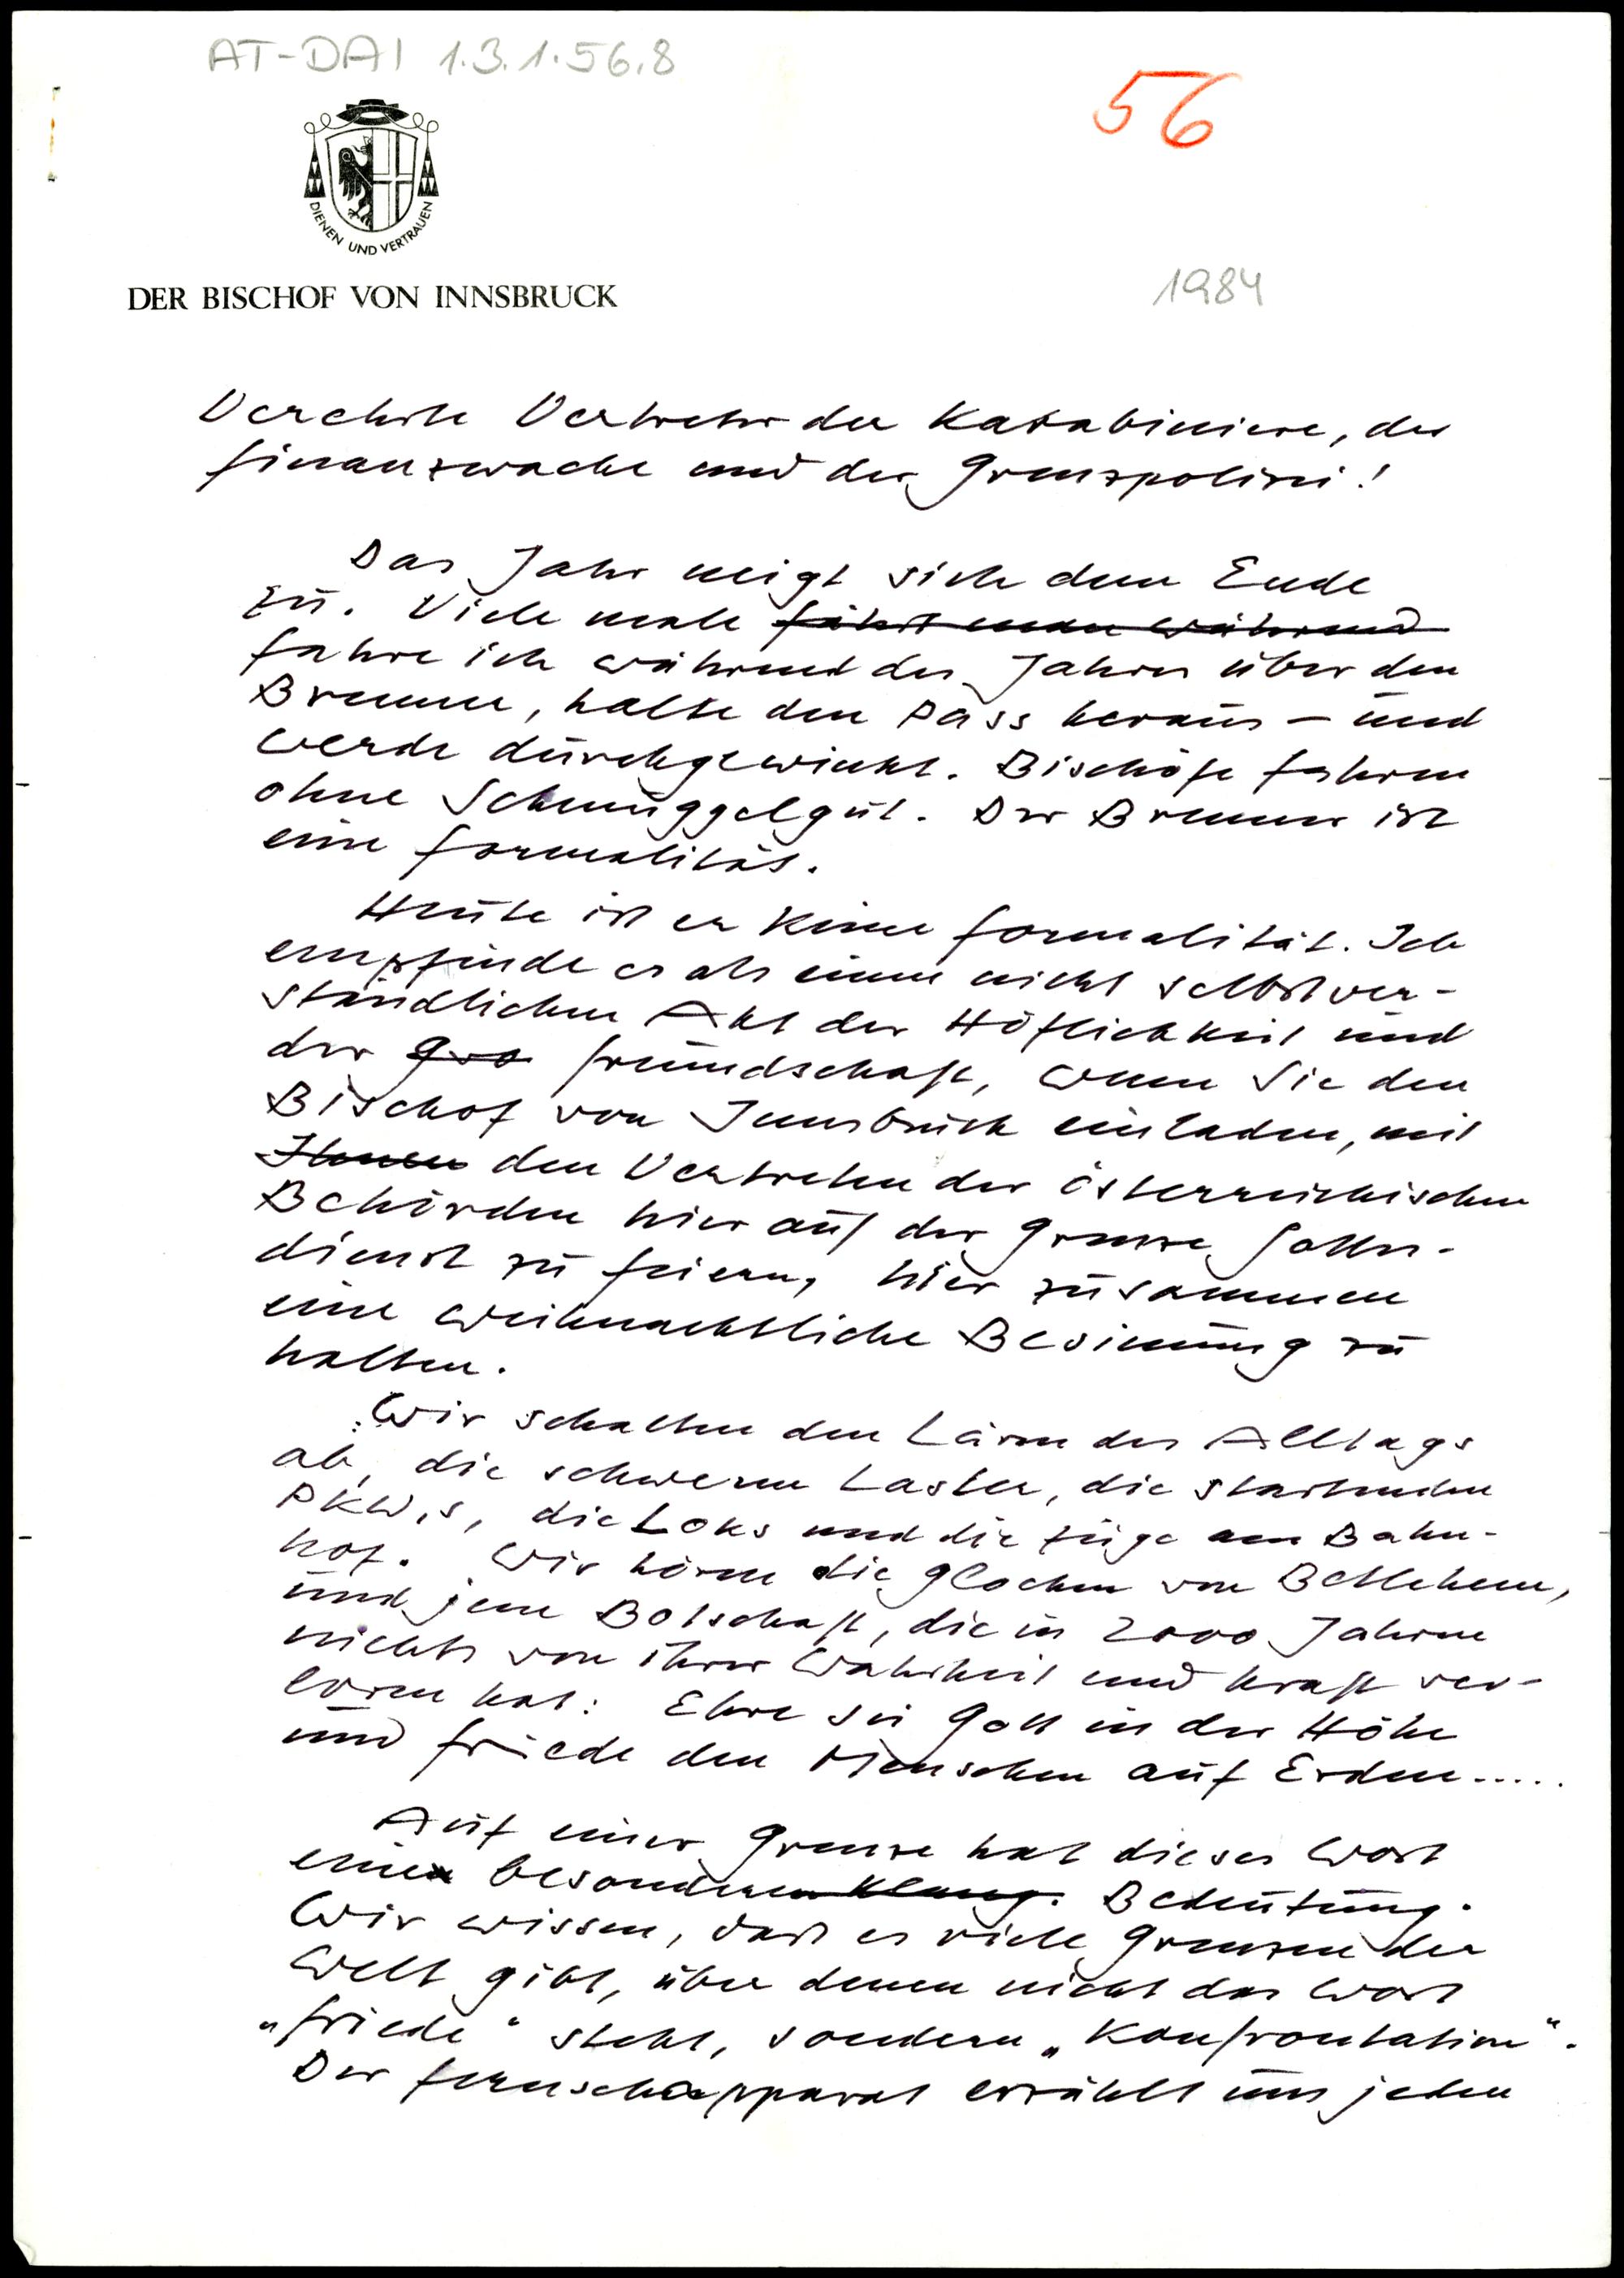 AT-DAI 1.3.1.56.8
56
DIENEN UND VERTRAUEN
DER BISCHOF VON INNSBRUCK
1984
Verehrte Vertreter der Karabiniere, der
Finanzwache und der Grenzpolizei!
Das Jahr neigt sich dem Ende
zu. Viele male fährt man während
fahre ich während des Jahres über den
Brenner, halte den Pass heraus – und
werde durchgewinkt. Bischöfe fahren
ohne Schmuggelgut. Der Brenner ist
eine Formalität.
Heute ist er keine Formalität. Ich
empfinde es als einen nicht selbstver-
ständlichen Akt der Höflichkeit und
der Gro Freundschaft, wenn Sie den
Bischof von Innsbruck einladen, mit
Ihnen den Vertretern der österreichischen
Behörden hier auf der Grenze Gottes-
dienst zu feiern, hier zusammen
eine weihnachtliche Besinnung zu
halten.
Wir schalten den Lärm des Alltags
ab, die schweren Laster, die startenden
PKW,s, die Loks und die Züge am Bahn-
hof. Wir hören die Glocken von Betlehem,
und jene Botschaft, die in 2000 Jahren
nichts von ihrer Wahrheit und Kraft ver-
loren hat: Ehre sei Gott in der Höhe
und Friede den Menschen auf Erden.....
Auf einer Grenze hat dieses Wort
einen besonderen Klang. Bedeutung.
Wir wissen, daß es viele Grenzen der
Welt gibt, über denen nicht das Wort
„Friede" steht, sondern „Konfrontation".
Der Fernsehapparat erzählt uns jeden